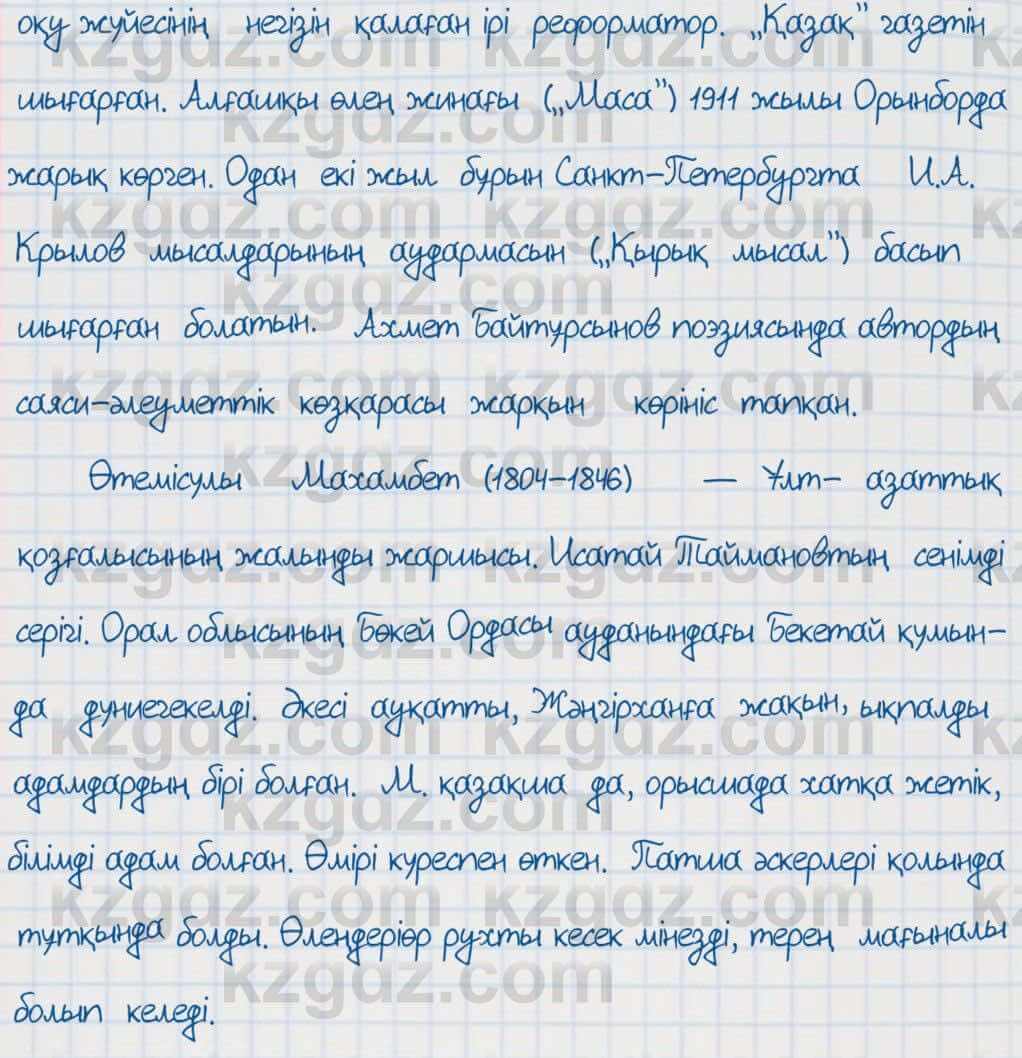 оқу жүйесінің негізін қалаған ірі реформатор. „Қазақ” газетін
шығарған. Алғашқы өлең жинағы („Маса”) 1911 жылы Орынборда
жарық көрген. Одан екі жыл бұрын Санкт-Петербургта И.А.
Крылов мысалдарының аудармасын („Қырық мысал”) басып
шығарған болатын. Ахмет Байтұрсынов поэзиясында автордың
саяси-әлеуметтік көзқарасы жарқын көрініс тапқан.
Өтемісұлы Махамбет (1804-1846) — Ұлт- азаттық
қозғалысының жалынды жаршысы. Исатай Таймановтың сенімді
серігі. Орал облысының Бөкей Ордасы ауданындағы Бекетай құмын-
да дүниегекелді. Әкесі ауқатты, Жәңгірханға жақын, ықпалды
адамдардың бірі болған. М. қазақша да, орысшада хатқа жетік,
білімді адам болған. Өмірі күреспен өткен. Патша әскерлері қолында
тұтқында болды. Өлендеріөр рухты кесек мінезді, терең мағыналы
болып келеді.
kzgdz.com